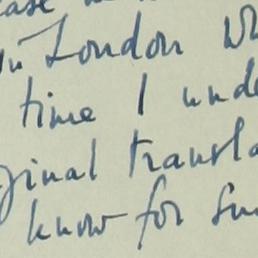 in London wh
time I unde
ginal transla
know for su